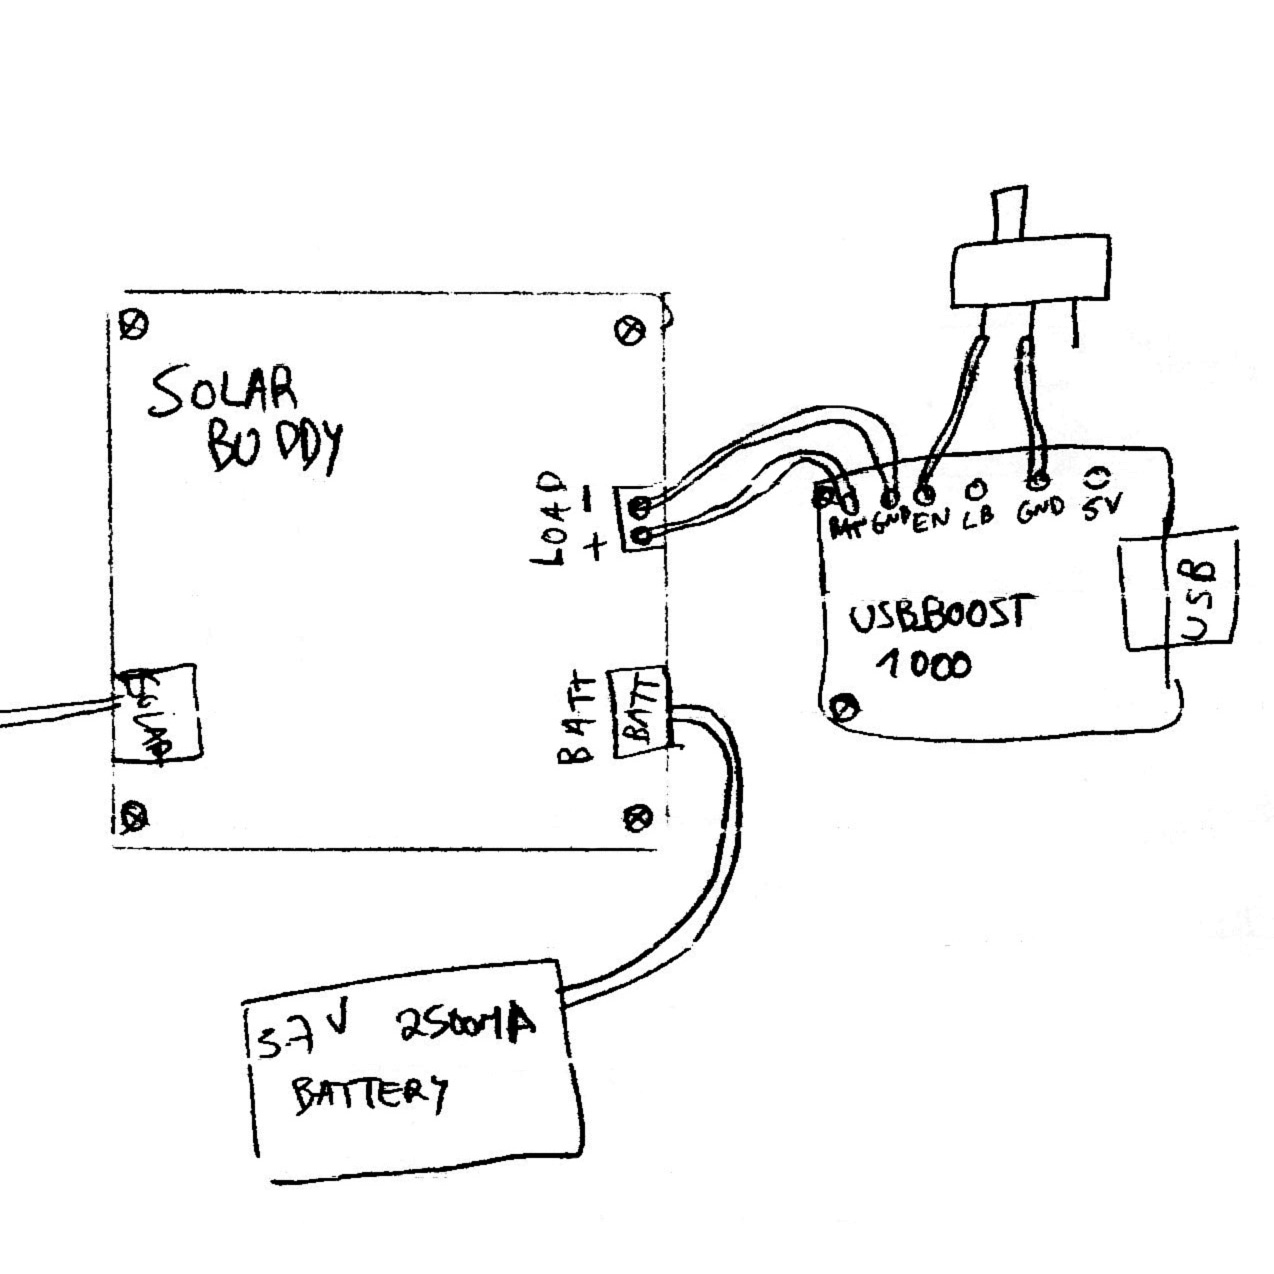 SOLAR
BUDDY
LOAD
-
+
BATT
BATT
BAT GND EN LB GND 5V
USBBOOST
1000
USB
3.7V 2500MA
BATTERY